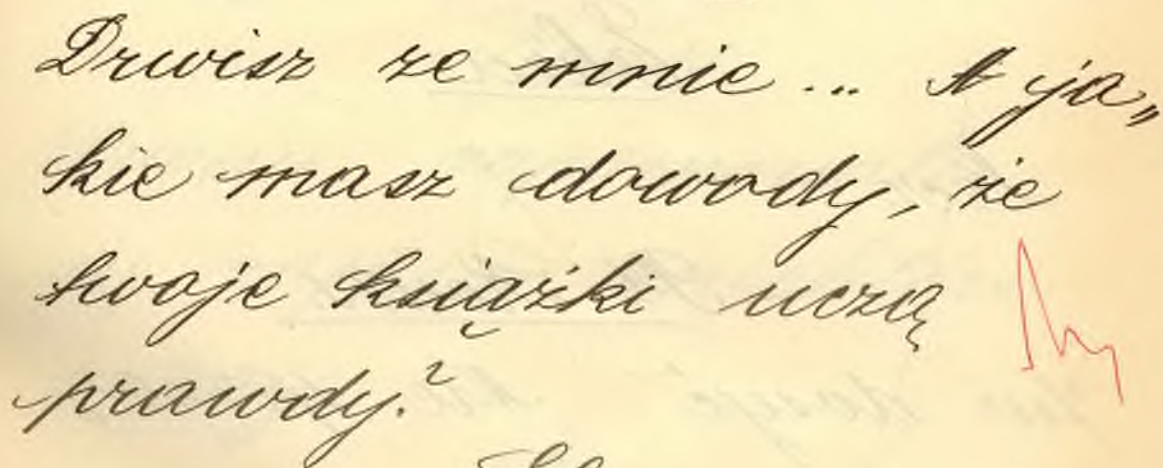 Drwisz ze mnie ... A ja„
kie masz dowody, że
twoje książki uczą
prawdy?